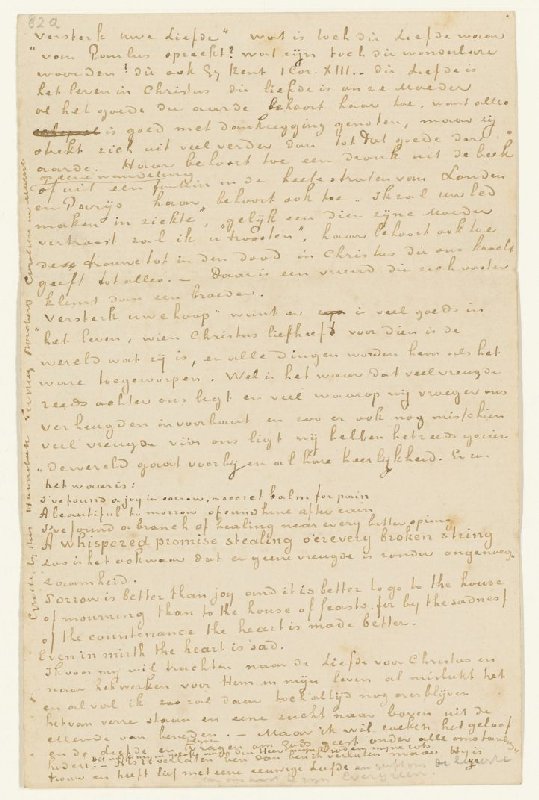 82a
versterk uwe Liefde" wat is toch die Liefde waar
"van Paulus spreekt? wat zijn toch die wonderbare
woorden! die ook gij kent 1 Cor. XIII.. die Liefde is
het leven in Christus die liefde is onze Moeder
al het goede der aarde behoort haar toe, want alles
is goed met dankzegging genoten, maar zij
strekt zich uit veel verder dan tot dat goede der
aarde. Haar behoort toe een dronk uit de beek
op eene wandeling
of uit een fontein in de heete straten van Londen
en Parijs haar behoort ook toe "ik zal uw bed
maken in ziekte", "gelijk een dien zijne Moeder
vertroost zal ik u troosten", haar behoort ook toe
de trouw tot in den dood in Christus die ons kracht
geeft tot alles. — Daar is een vriend die meer
klemt dan een broeder.
"Versterk uwe hoop" want er is veel goeds in
het leven, wien Christus liefheeft voor dien is de
wereld wat zij is, en alle dingen worden hem als het
ware toegeworpen. Wel is het waar dat veel vreugde
reeds achter ons ligt en veel waarop wij vroeger ons
verheugden is voorbij en zoo er ook nog misschien
veel vreugde vóór ons ligt wij hebben het reeds gezien
"de wereld gaat voorbij en al hare heerlijkheid. En
het waar is:
I've found a joy in sorrow, a secret balm for pain
A beautiful to-morrow of sunshine after rain
I've found a branch of healing near every bitter spring
A whispered promise stealing o'er every broken string
zoo is het ook waar dat er geene vreugde is zonder
Sorrow is better than joy and it is better to go to the house
of mourning than to the house of feasts, for by the sadness
of the countenance the heart is made better.
Even in mirth the heart is sad.
Ik voor mij wil trachten naar de Liefde voor Christus en
naar het werken voor Hem in mijn leven al mislukt het
en al val ik zoo zal daar toch altijd nog overblijven
het van verre staan en eene zucht naar boven uit de
ellende van beneden. — Maar ik wil zoeken het geloof
en de Liefde en vragen
trouw en heeft lief met eene eeuwige Liefde en